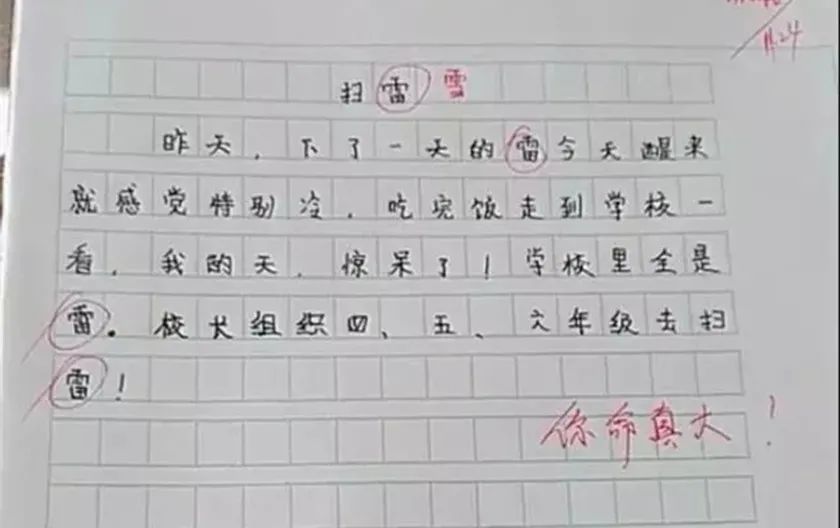 11.24
扫雷 雪
昨天，下了一天的雷今天醒来
就感觉特别冷，吃完饭走到学校一
看，我的天，惊呆了！学校里全是
雷。校长组织四、五、六年级去扫
雷！
你命真大！